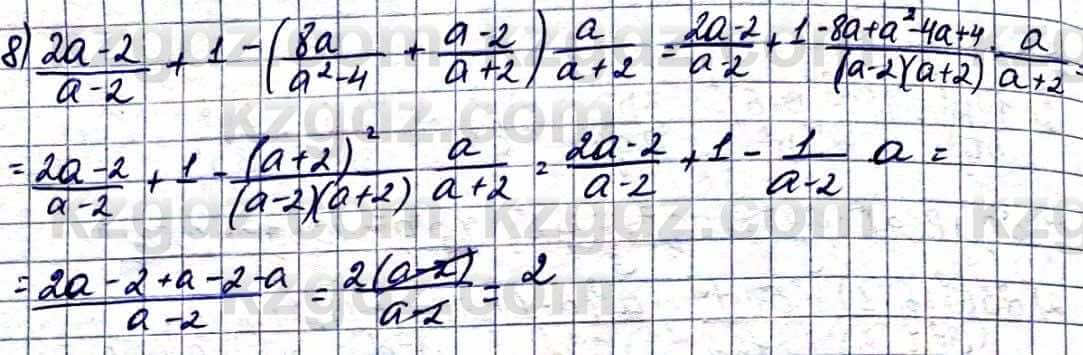 8) (2a-2)/(a-2) + 1 - (8a/(a²-4) + (a-2)/(a+2)) a/(a+2) = (2a-2)/(a-2) + 1 - (8a+a²-4a+4)/((a-2)(a+2)) · a/(a+2) =
= (2a-2)/(a-2) + 1 - (a+2)²/((a-2)(a+2)) a/(a+2) = (2a-2)/(a-2) + 1 - 1/(a-2) a =
= (2a-2+a-2-a)/(a-2) = 2(a-2)/(a-2) = 2
kzgdz.com